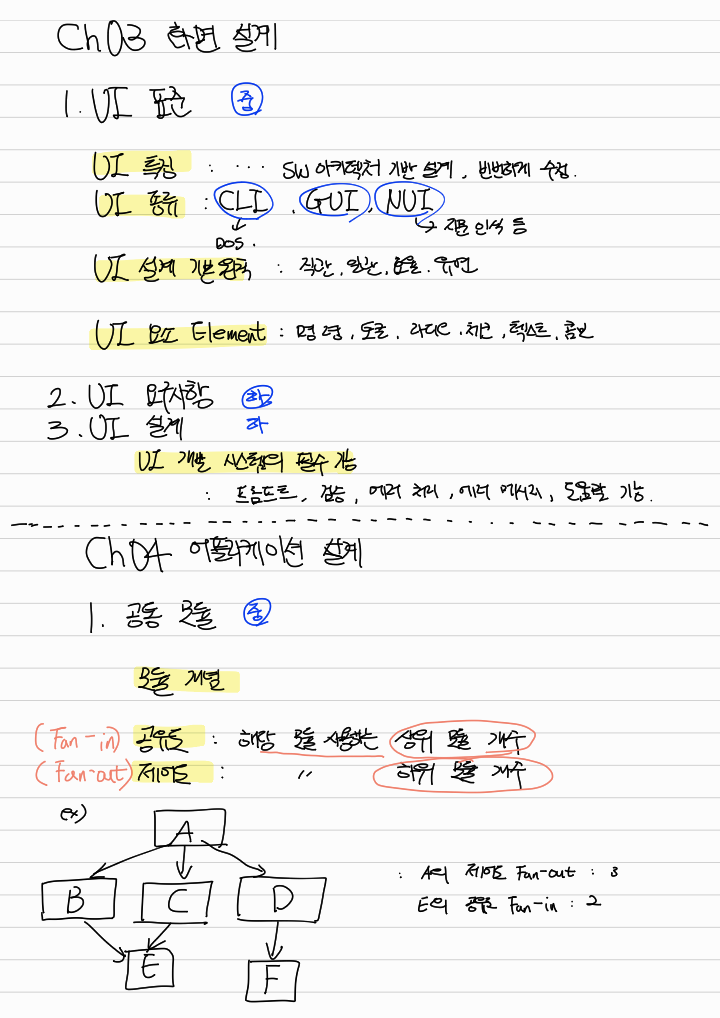 Ch03 화면 설계
1. UI 표준 중
UI 특징 : ... SW 아키텍처 기반 설계, 빈번하게 수정.
UI 종류 : CLI, GUI, NUI
DOS. 지문 인식 등
UI 설계 기본원칙 : 직관, 일관, 효율, 유연
UI 요소 Element : 명령, 토글, 라디오, 체크, 텍스트, 콤보
2. UI 요구사항
3. UI 설계 하
UI 개발 시스템의 필수 기능
: 프롬프트, 검증, 에러 처리, 에러 메시지, 도움말 기능.
Ch04 어플리케이션 설계
1. 공통 모듈 중
모듈 개념
(Fan-in) 공유도 : 해당 모듈 사용하는 상위 모듈 개수
(Fan-out) 제어도 : 〃 하위 모듈 개수
ex)
A
: A의 제어도 Fan-out : 3
B C D
E의 공유도 Fan-in : 2
E F